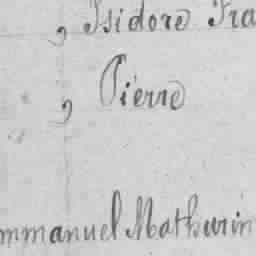 , Isidore Fra
, Pierre
mmanuel Mathurin